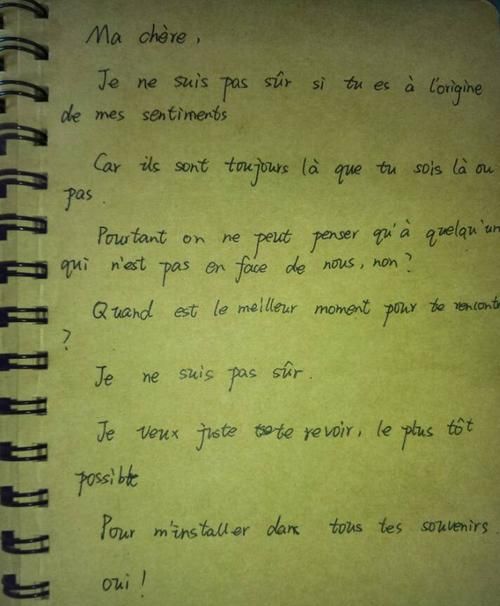 Ma chère,
Je ne suis pas sûr si tu es à l'origine
de mes sentiments
Car ils sont toujours là que tu sois là ou
pas.
Pourtant on ne peut penser qu'à quelqu'un
qui n'est pas en face de nous, non?
Quand est le meilleur moment pour te rencontr
?
Je ne suis pas sûr.
Je veux juste te revoir, le plus tôt
possible
Pour m'installer dans tous tes souvenirs
oui!